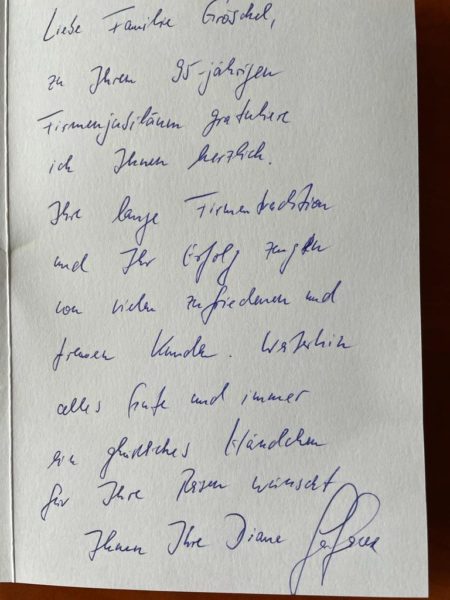 Liebe Familie Gröschel,
zu Ihrem 95-jährigen
Firmenjubiläum gratuliere
ich Ihnen herzlich.
Ihre lange Firmentradition
und Ihr Erfolg zeugen
von vielen zufriedenen und
treuen Kunden. Weiterhin
alles Gute und immer
ein glückliches Händchen
für Ihre Rosen wünscht
Ihnen Ihre Diane